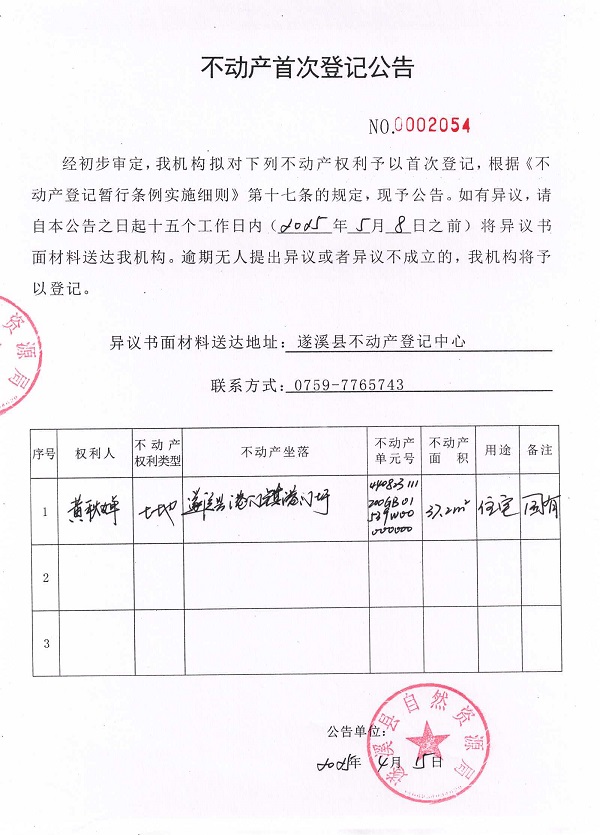 不动产首次登记公告
NO.0002054
经初步审定，我机构拟对下列不动产权利予以首次登记，根据《不
动产登记暂行条例实施细则》第十七条的规定，现予公告。如有异议，请
自本公告之日起十五个工作日内（2025年5月8日之前）将异议书
面材料送达我机构。逾期无人提出异议或者异议不成立的，我机构将予
以登记。
资源局
异议书面材料送达地址：遂溪县不动产登记中心
联系方式：0759-7765743
序号 权利人 不动产权利类型 不动产坐落 不动产单元号 不动产面积 用途 备注
1 黄秋婵 土地 遂溪县港门镇港门圩 440823111200GB01539W00000000 37.2m² 住宅 国有
2
3
遂溪县自然资源局
公告单位：
2025年4月15日